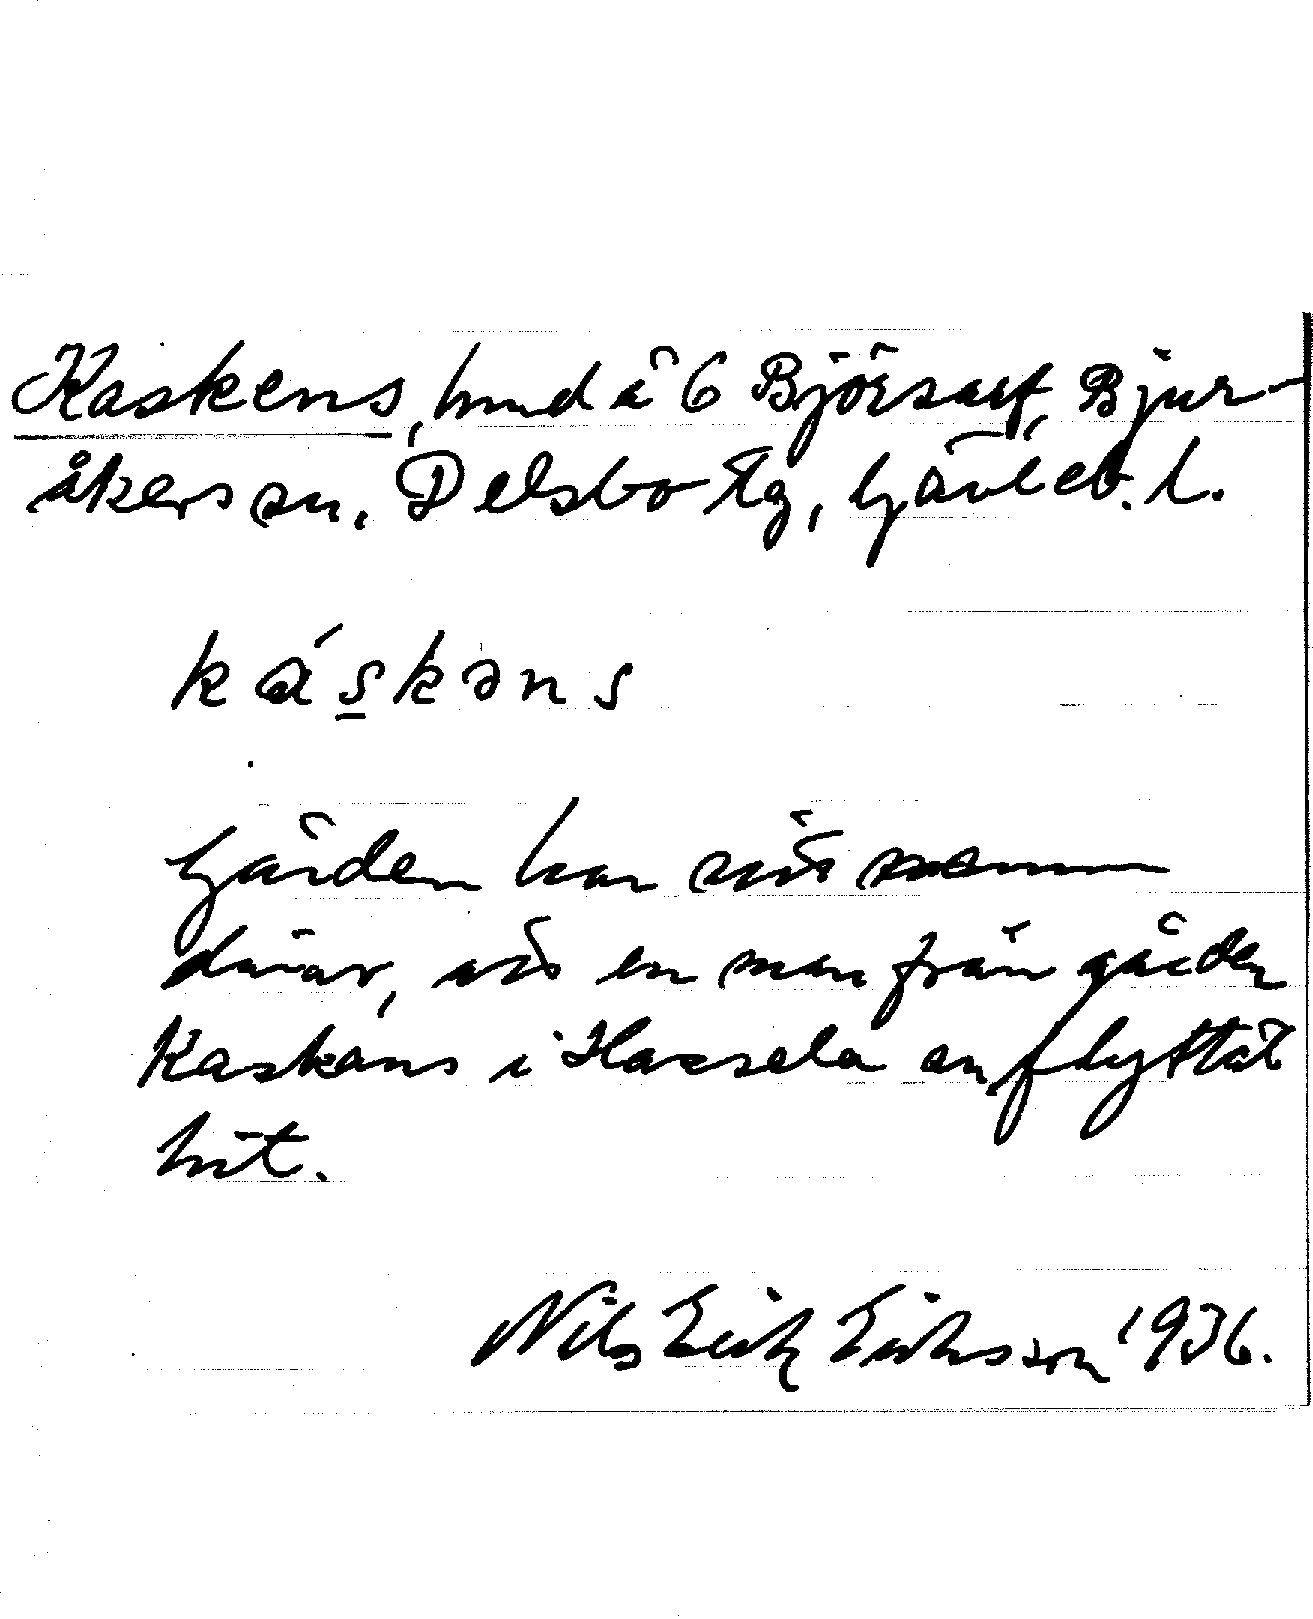 Kaskens, hmd å 6 Björsarf, Bjur-
åkers sn, Delsbo tg, Gävleb. l.
káskəns
Gården har sitt namn
därav, att en man från gården
Kaskens i Hassela sn flyttat
hit.
Nils Erik Eriksson 1936.